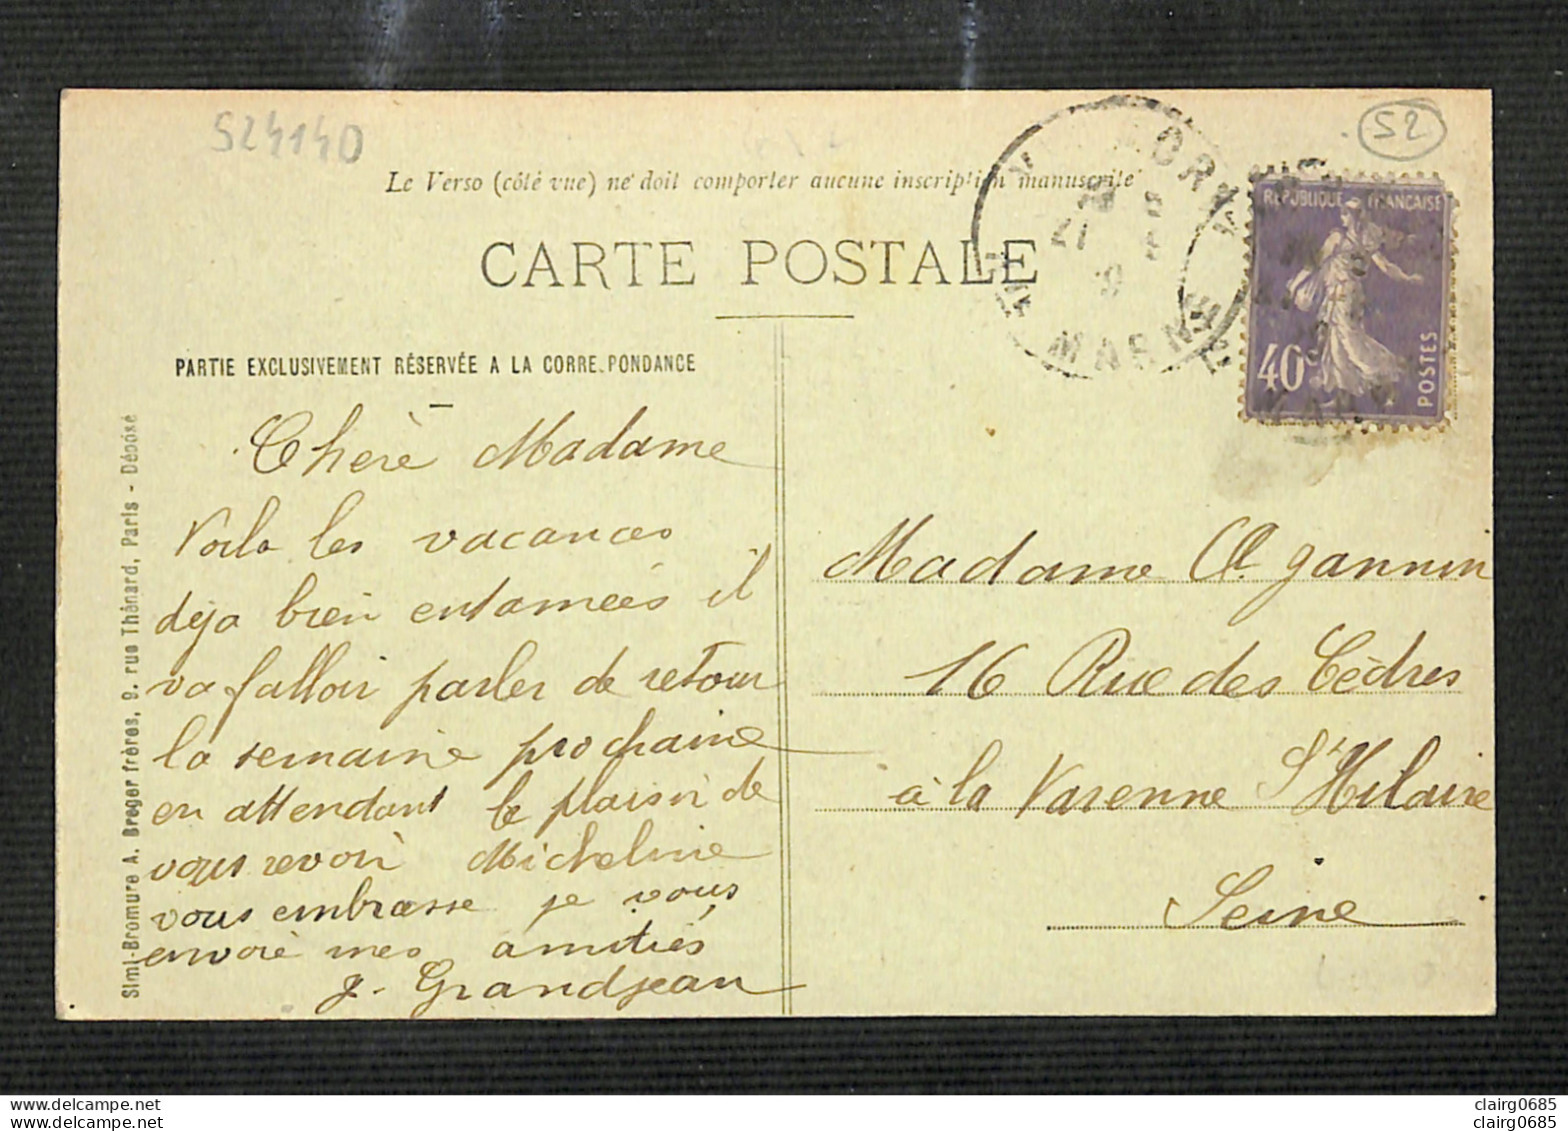 524140
52
Le Verso (côté vue) ne doit comporter aucune inscription manuscrite
CARTE POSTALE
MARNE
REPUBLIQUE FRANÇAISE
40c
POSTES
PARTIE EXCLUSIVEMENT RÉSERVÉE A LA CORRE.PONDANCE
Simi-Bromure A. Breger frères, 9, rue Thénard, Paris - Déposé
Chère Madame
Voila les vacances
déja bien entamées il
va falloir parler de retour
la semaine prochaine
en attendant le plaisir de
vous revoir Micheline
vous embrasse je vous
envoie mes amitiés
J. Grandjean
Madame A. Jannin
16 Rue des Cèdres
à la Varenne St Hilaire
Seine
clairg0685
clairg0685
www.delcampe.net
www.delcampe.net